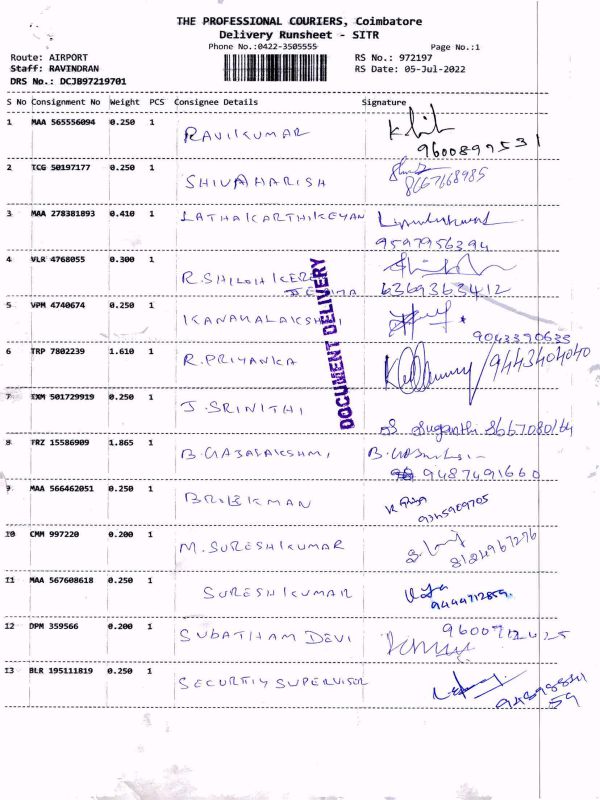 THE PROFESSIONAL COURIERS, Coimbatore
Delivery Runsheet - SITR
Phone No.:0422-3505555 Page No.:1
Route: AIRPORT RS No.: 972197
Staff: RAVINDRAN RS Date: 05-Jul-2022
DRS No.: DCJB97219701
S No Consignment No Weight PCS Consignee Details Signature
1 MAA 565556094 0.250 1 RAVIKUMAR
9600899531
2 TCG 50197177 0.250 1 SHIVAHARISH
8667668985
3 MAA 278381893 0.410 1 LATHAKARTHIKEYAN
9597956394
4 VLR 4768055 0.300 1 R.SHILOH
6369363412
5 VPM 4740674 0.250 1
9043390633
6 TRP 7802239 1.610 1 R.PRIYANKA
9443404040
7 EXM 501729919 0.250 1 J.SRINITHI
Suganthi
8 TRZ 15586909 1.865 1 B.GAJALAKSHMI
9487491660
9 MAA 566462051 0.250 1
K Priya
9345909705
10 CMM 997220 0.200 1 M.SURESHKUMAR
8124967276
11 MAA 567608618 0.250 1 SURESHKUMAR
9444712859
12 DPM 359566 0.200 1 SUBATHAM DEVI
13 BLR 195111819 0.250 1 SECURTIY SUPERVISOR
59
DOCUMENT DELIVERY